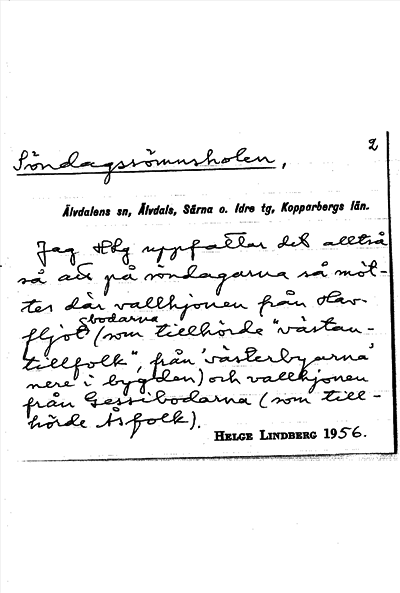 2
Söndagsrömnsholen,
Älvdalens sn, Älvdals, Särna o. Idre tg, Kopparbergs län.
Jag Hlg uppfattar det alltså
så att på söndagarna så möt-
tes där vallhjonen från Hav-
fljotsbodarna (som tillhörde "västan-
tillfolk", från 'västerbyarna'
nere i bygden) och vallhjonen
från Gessibodarna (som till-
hörde Åsfolk).
HELGE LINDBERG 1956.